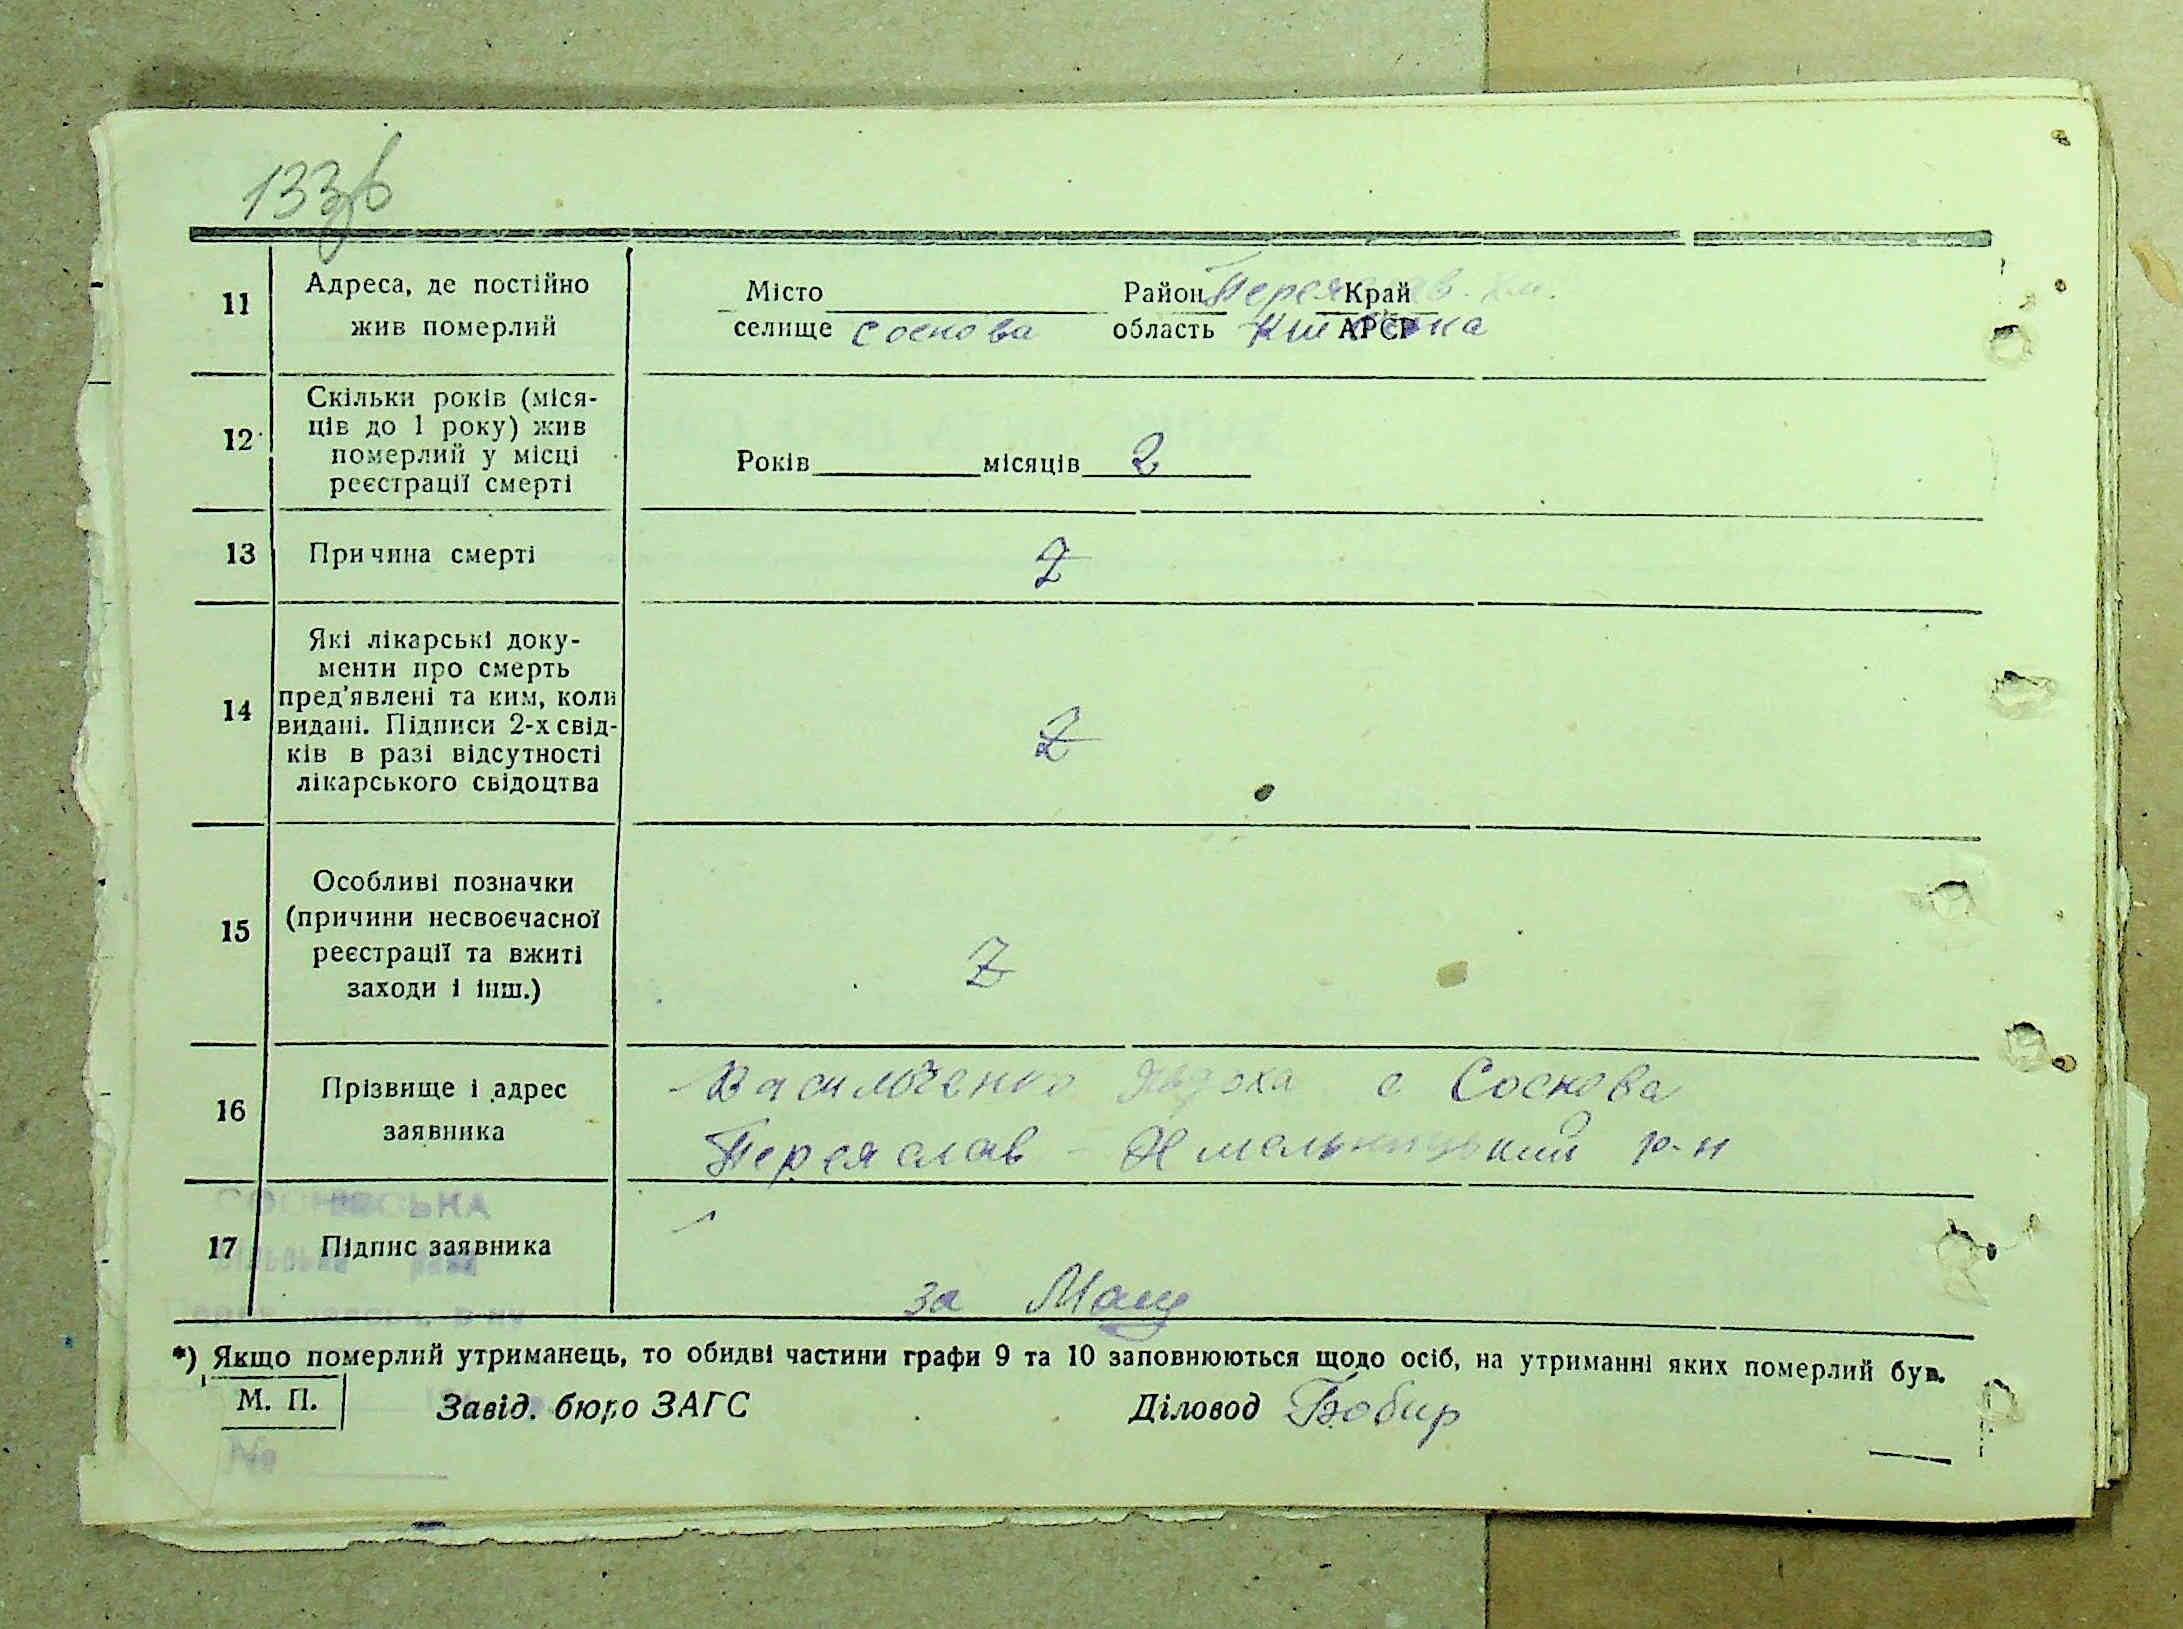 133
11
Адреса, де постійно
жив померлий
Місто
Район Переяслав. Хм. Край
селище Соснова область Київська АРСР
12
Скільки років (міся-
ців до 1 року) жив
померлий у місці
реєстрації смерті
Років місяців 2
13
Причина смерті
Z
14
Які лікарські доку-
менти про смерть
пред'явлені та ким, коли
видані. Підписи 2-х свід-
ків в разі відсутності
лікарського свідоцтва
Z
15
Особливі позначки
(причини несвоєчасної
реєстрації та вжиті
заходи і інш.)
Z
16
Прізвище і адрес
заявника
Василченко Явдоха с Соснова
Переяслав - Хмельницький р-н
СОСНІВСЬКА
сільська рада
17
Підпис заявника
за
*) Якщо померлий утриманець, то обидві частини графи 9 та 10 заповнюються щодо осіб, на утриманні яких померлий був.
М. П.
Завід. бюро ЗАГС
Діловод Бобир
№